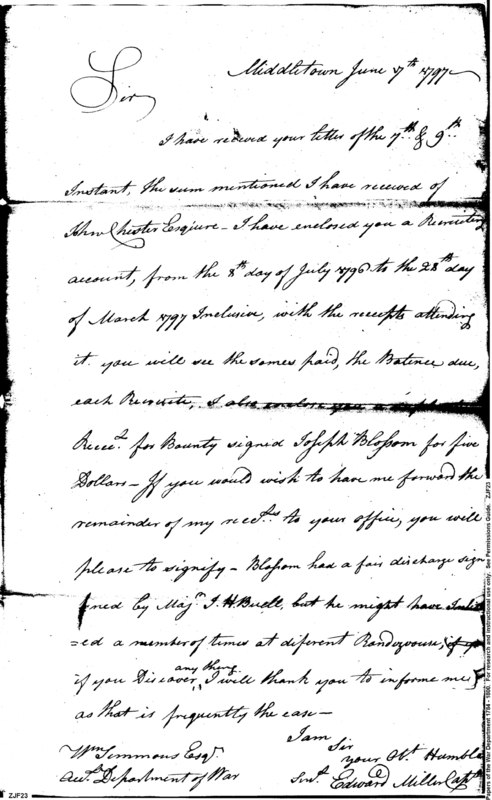 Middletown June 7th 1797
Sir
I have receved your letter of the 7th & 9th
Instant, the sum mentioned I have receved of
John Chester Esqiure - I have enclosed you a Recruiting
account, from the 8th day of July 1796 to the 28th day
of March 1797 Inclusive, with the recepts attending
it. you will see the somes paid, the Balence due,
each Recruite, I also enclose you a
Recet. for Bounty signed Joseph Blossom for five
Dollars - If you would wish to have me forward the
remainder of my recets to your office, you will
please to signify - Blossom had a fair discharge sign
=ned by Majr. J. H. Buell, but he might have Inlist
=ed a number of times at diferent Randezvouse,
if you Discover any thing I will thank you to informe me
as that is frequently the case -
I am Sir
your Obt. Humble
Servt. Edward Miller Capt.
Wm Simmons Esqr.
Acct. Department of War
ZJF23
Papers of the War Department 1784 - 1800. For research and instructional use only. See Permissions Guide. ZJF23